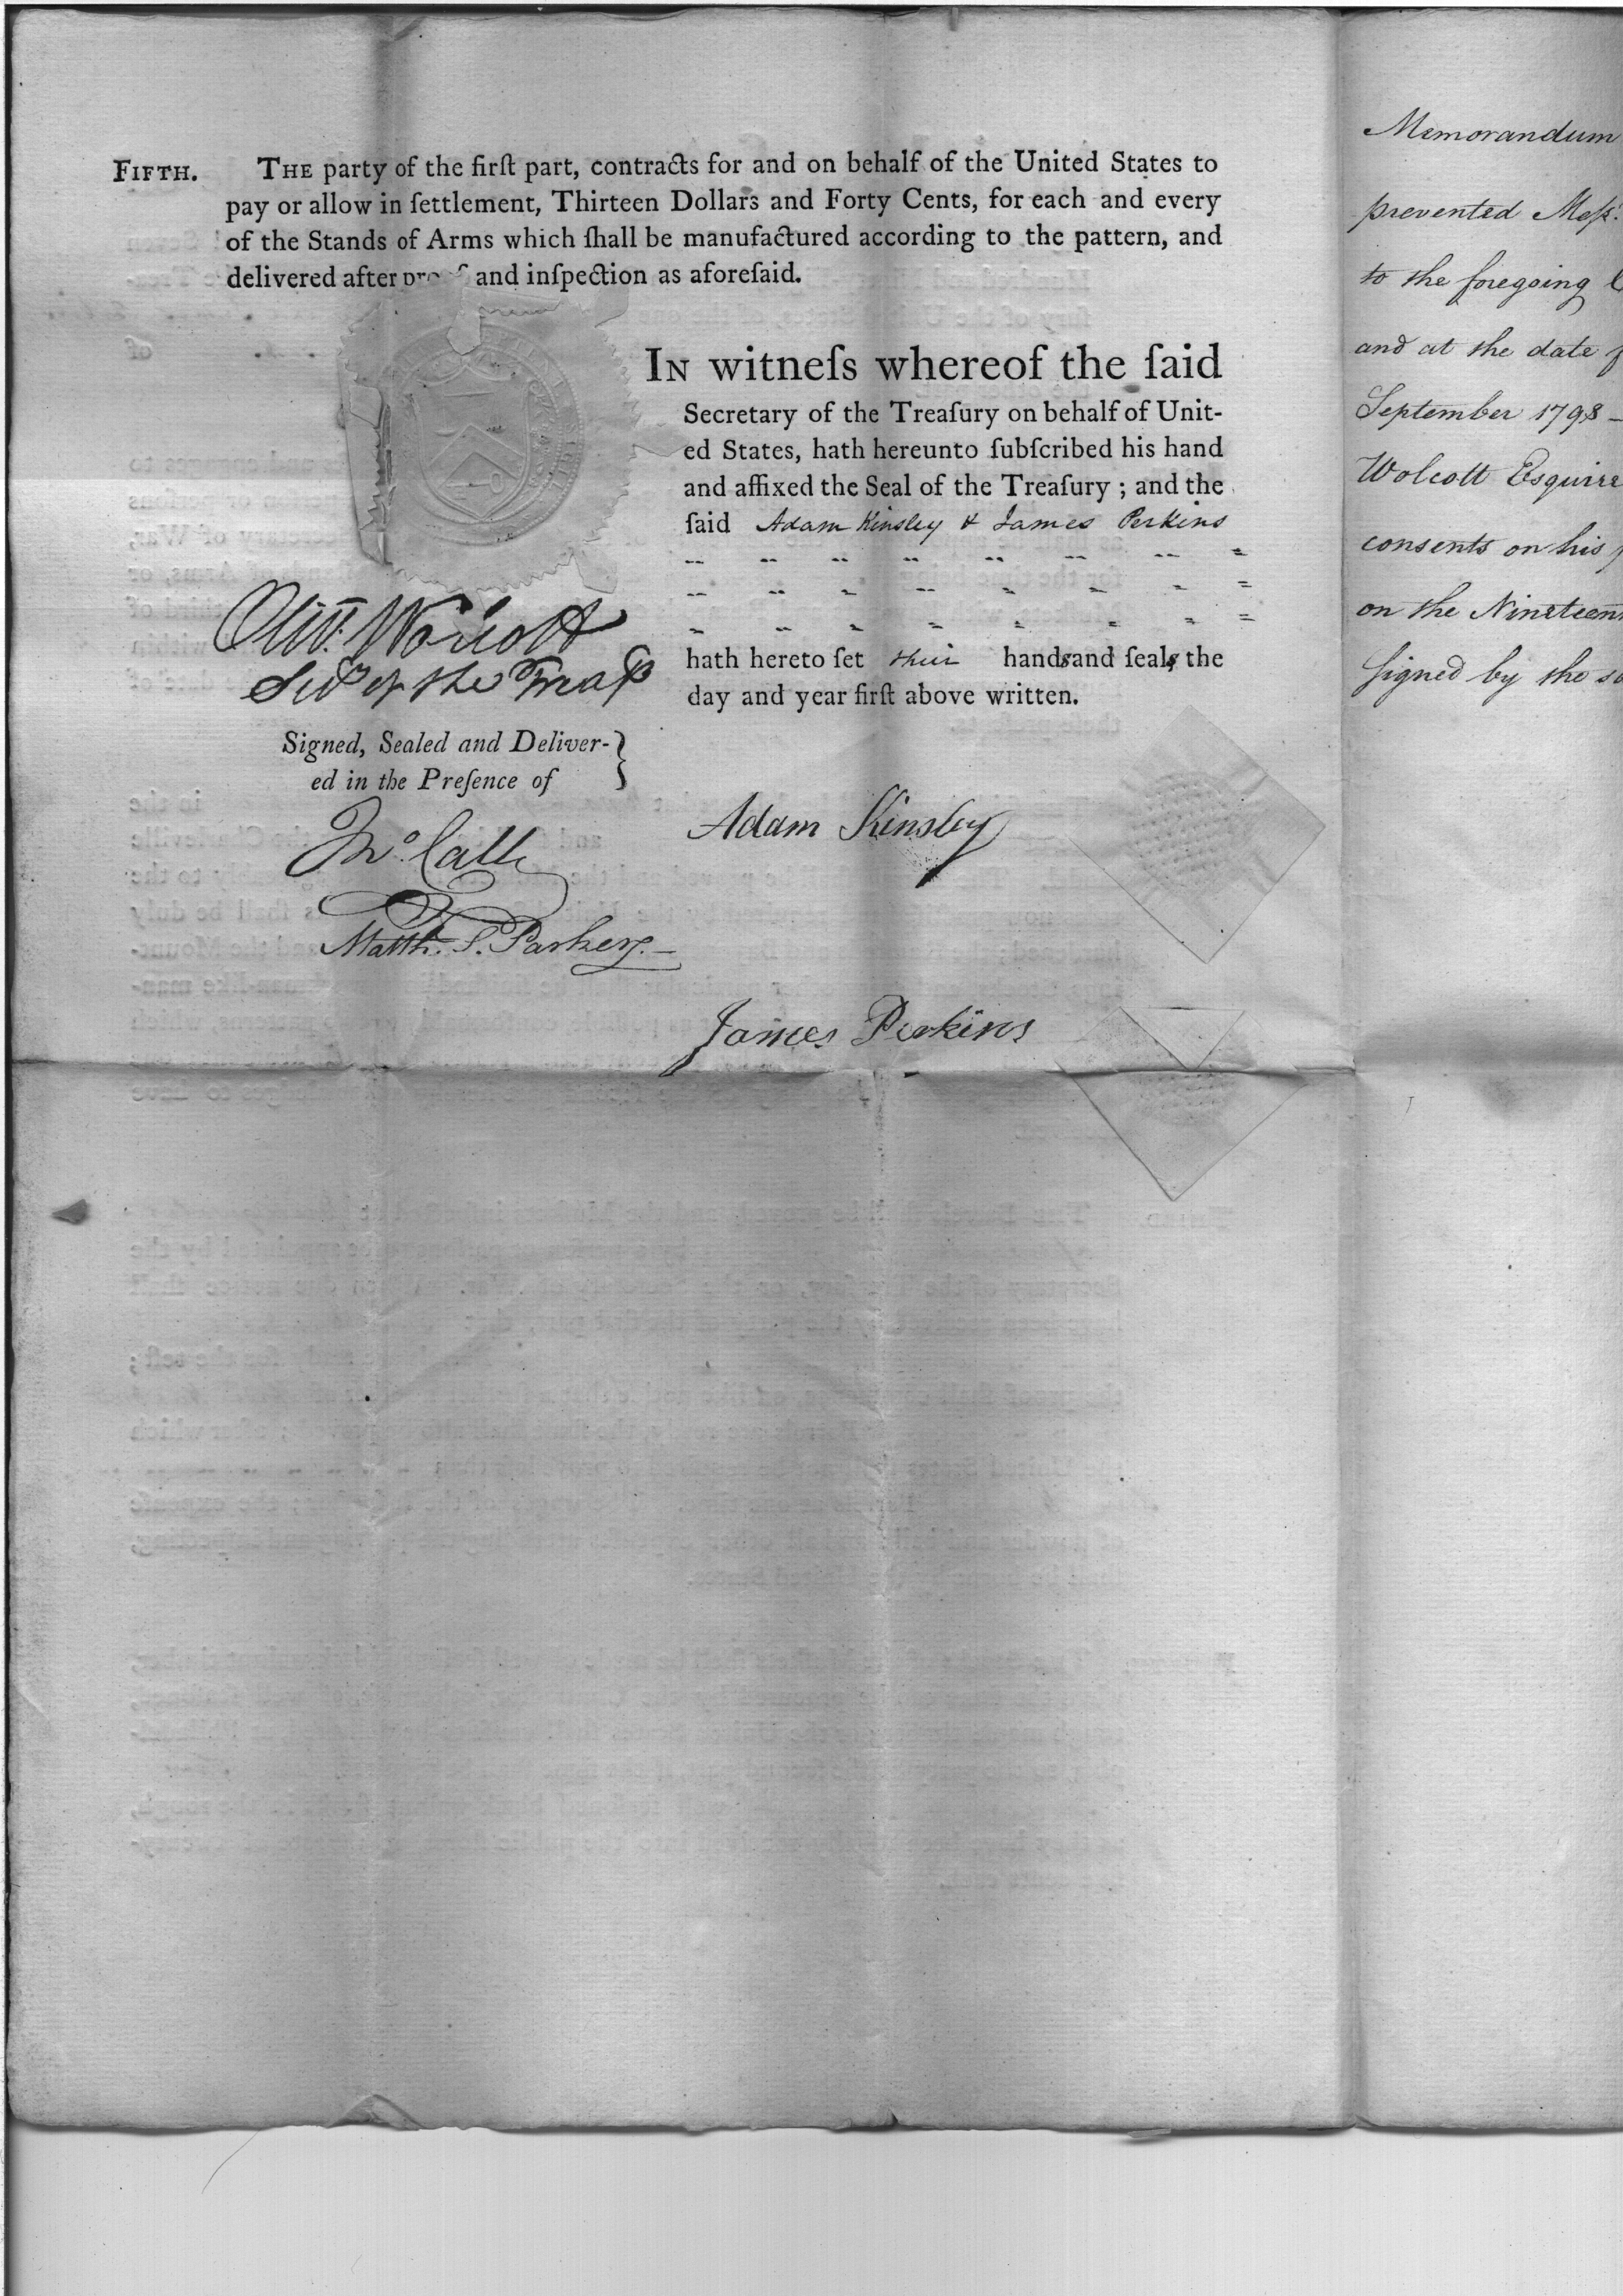 FIFTH. THE party of the firſt part, contracts for and on behalf of the United States to
pay or allow in ſettlement, Thirteen Dollars and Forty Cents, for each and every
of the Stands of Arms which ſhall be manufactured according to the pattern, and
delivered after and inſpection as aforeſaid.
IN witneſs whereof the ſaid
Secretary of the Treaſury on behalf of Unit-
ed States, hath hereunto ſubſcribed his hand
and affixed the Seal of the Treaſury ; and the
ſaid Adam Kinsley & James Perkins
hath hereto ſet their hands and ſeals the
day and year firſt above written.
Oliv. Wolcott
of the
Signed, Sealed and Deliver-
ed in the Preſence of
Matth. S. Parker
Adam Kinsley
James Perkins
Memorandum
prevented Meſs.
to the foregoing
and at the date
September 1798 –
Wolcott Esquire
consents on his
on the
signed by the